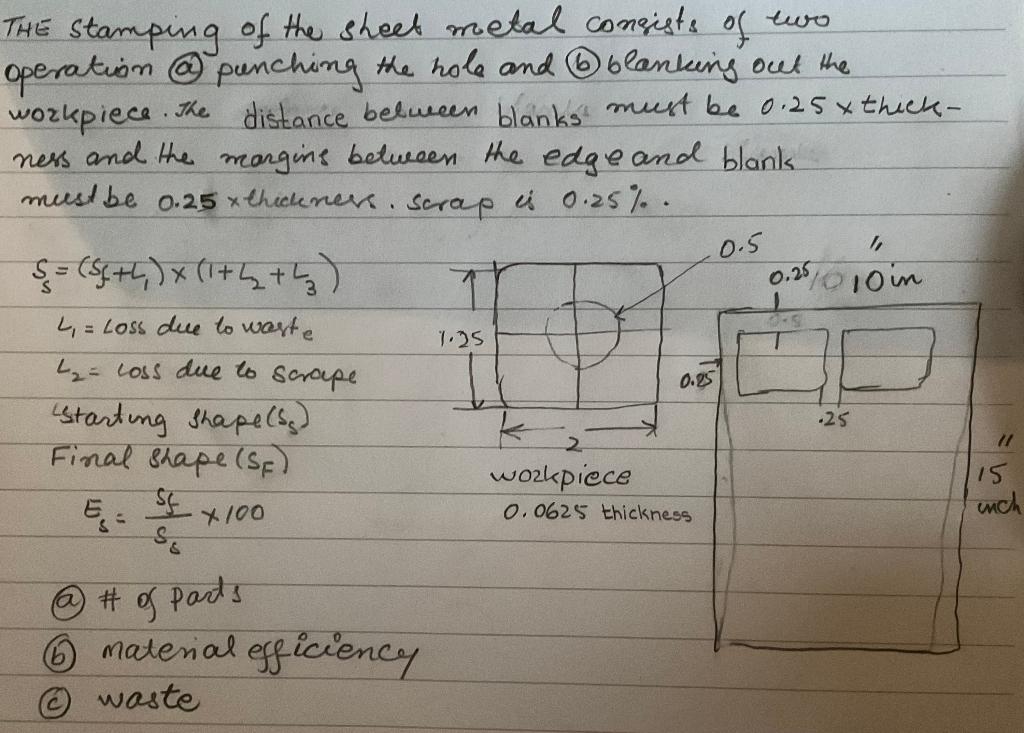 THE stamping of the sheet metal consists of two
operation ⓐ punching the hole and ⓑ blanking out the
workpiece. The distance between blanks must be 0.25 x thick-
ness and the margins between the edge and blank
must be 0.25 x thickness. scrap is 0.25%.
Ss = (Sf+L1) x (1+L2+L3)
L1 = Loss due to waste
L2 = Loss due to scrape
Starting shape (Ss)
Final shape (SF)
Es = Sf/Ss x 100
ⓐ # of parts
ⓑ material efficiency
ⓒ waste
0.5
1.25
2
workpiece
0.0625 thickness
0.25
10 in
"
0.5
0.25
.25
"
15
inch